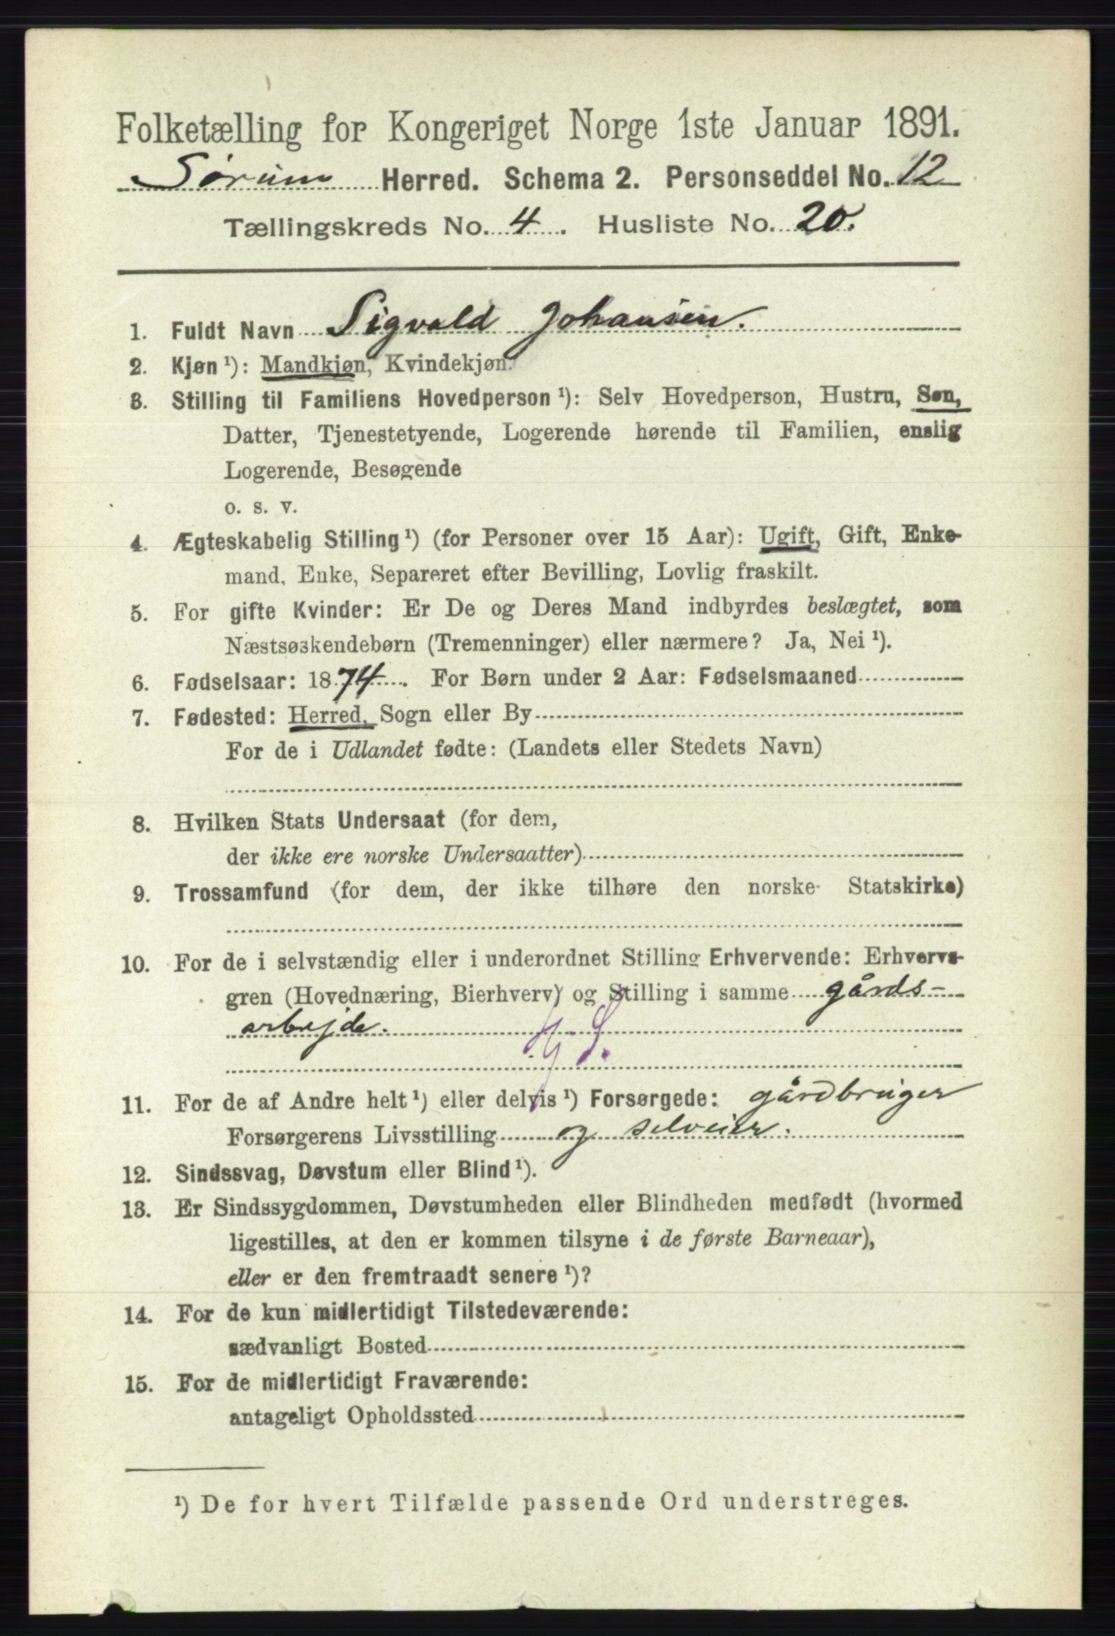 Folketælling for Kongeriget Norge 1ste Januar 1891.
Sørum Herred. Schema 2. Personseddel No. 12
Tællingskreds No. 4. Husliste No. 20.
1. Fuldt Navn Sigvald Johansen.
2. Kjøn ¹): Mandkjøn, Kvindekjøn.
3. Stilling til Familiens Hovedperson ¹): Selv Hovedperson, Hustru, Søn,
Datter, Tjenestetyende, Logerende hørende til Familien, enslig
Logerende, Besøgende
o. s. v.
4. Ægteskabelig Stilling ¹) (for Personer over 15 Aar): Ugift, Gift, Enke-
mand, Enke, Separeret efter Bevilling, Lovlig fraskilt.
5. For gifte Kvinder: Er De og Deres Mand indbyrdes beslægtet, som
Næstsøskendebørn (Tremenninger) eller nærmere? Ja, Nei ¹).
6. Fødselsaar: 1874. For Børn under 2 Aar: Fødselsmaaned
7. Fødested: Herred, Sogn eller By
For de i Udlandet fødte: (Landets eller Stedets Navn)
8. Hvilken Stats Undersaat (for dem,
der ikke ere norske Undersaatter)
9. Trossamfund (for dem, der ikke tilhøre den norske Statskirke)
10. For de i selvstændig eller i underordnet Stilling Erhvervende: Erhvervs-
gren (Hovednæring, Bierhverv) og Stilling i samme gårds-
arbejde.
H S.
11. For de af Andre helt ¹) eller delvis ¹) Forsørgede: gårdbruger
Forsørgerens Livsstilling og selveier.
12. Sindssvag, Døvstum eller Blind ¹).
13. Er Sindssygdommen, Døvstumheden eller Blindheden medfødt (hvormed
ligestilles, at den er kommen tilsyne i de første Barneaar),
eller er den fremtraadt senere ¹)?
14. For de kun midlertidigt Tilstedeværende:
sædvanligt Bosted
15. For de midlertidigt Fraværende:
antageligt Opholdssted
¹) De for hvert Tilfælde passende Ord understreges.